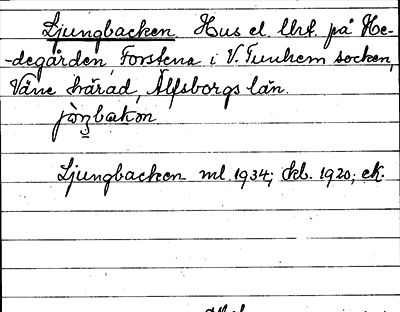 Ljungbacken Hus el. lht. på He-
-degården, Forstena i V. Tunhem socken,
Väne härad, Älfsborgs län.
jòn̲bakən
Ljungbacken ml. 1934; ckl. 1920; ek.